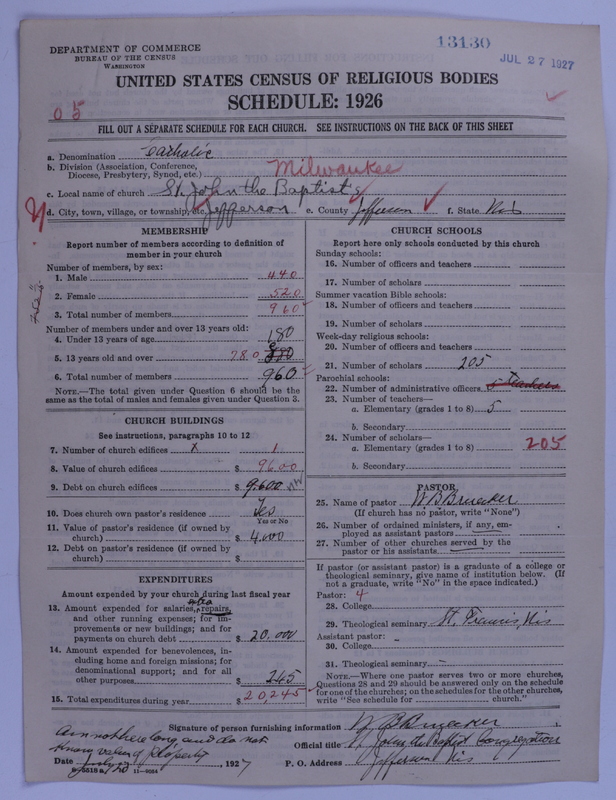 DEPARTMENT OF COMMERCE
BUREAU OF THE CENSUS
WASHINGTON
13130
JUL 27 1927
UNITED STATES CENSUS OF RELIGIOUS BODIES
SCHEDULE: 1926
05
FILL OUT A SEPARATE SCHEDULE FOR EACH CHURCH. SEE INSTRUCTIONS ON THE BACK OF THIS SHEET
a. Denomination Catholic
b. Division (Association, Conference, Diocese, Presbytery, Synod, etc.) Milwaukee
c. Local name of church St. John the Baptist's
d. City, town, village, or township, etc. Jefferson e. County Jefferson f. State
MEMBERSHIP
Report number of members according to definition of
member in your church
Number of members, by sex:
1. Male 440
2. Female 520
3. Total number of members 960
Number of members under and over 13 years old:
4. Under 13 years of age 180
5. 13 years old and over 780
6. Total number of members 960
NOTE.—The total given under Question 6 should be
same as the total of males and females given under Question 3.
CHURCH BUILDINGS
See instructions, paragraphs 10 to 12
7. Number of church edifices X 1
8. Value of church edifices $ 9600
9. Debt on church edifices $ 9.600
10. Does church own pastor's residence Yes
Yes or No
11. Value of pastor's residence (if owned by
church) $ 4.000
12. Debt on pastor's residence (if owned by
church) $
EXPENDITURES
Amount expended by your church during last fiscal year
13. Amount expended for salaries, extra repairs,
and other running expenses; for im-
provements or new buildings; and for
payments on church debt $ 20.000
14. Amount expended for benevolences, in-
cluding home and foreign missions; for
denominational support; and for all
other purposes $ 245
15. Total expenditures during year $ 20,245
CHURCH SCHOOLS
Report here only schools conducted by this church
Sunday schools:
16. Number of officers and teachers
17. Number of scholars
Summer vacation Bible schools:
18. Number of officers and teachers
19. Number of scholars
Week-day religious schools:
20. Number of officers and teachers
21. Number of scholars 205
Parochial schools:
22. Number of administrative officers 5 teachers
23. Number of teachers—
a. Elementary (grades 1 to 8) 5
b. Secondary
24. Number of scholars—
a. Elementary (grades 1 to 8) 205
b. Secondary
PASTOR
25. Name of pastor W B Bruecker
(If church has no pastor, write "None")
26. Number of ordained ministers, if any, em-
ployed as assistant pastors
27. Number of other churches served by the
pastor or his assistants
If pastor (or assistant pastor) is a graduate of a college or
theological seminary, give name of institution below. (If
not a graduate, write "No" in the space indicated.)
Pastor: 4
28. College
29. Theological seminary St. Francis, Wis
Assistant pastor: -
30. College
31. Theological seminary -
NOTE.—Where one pastor serves two or more churches,
Questions 28 and 29 should be answered only on the schedule
for one of the churches; on the schedules for the other churches,
write "See schedule for church."
Signature of person furnishing information W B Bruecker
am not here long and do not
know value of property
Official title St. John the Baptist Congregation
Date July 20, 1927
P. O. Address Jefferson Wis
11-9051